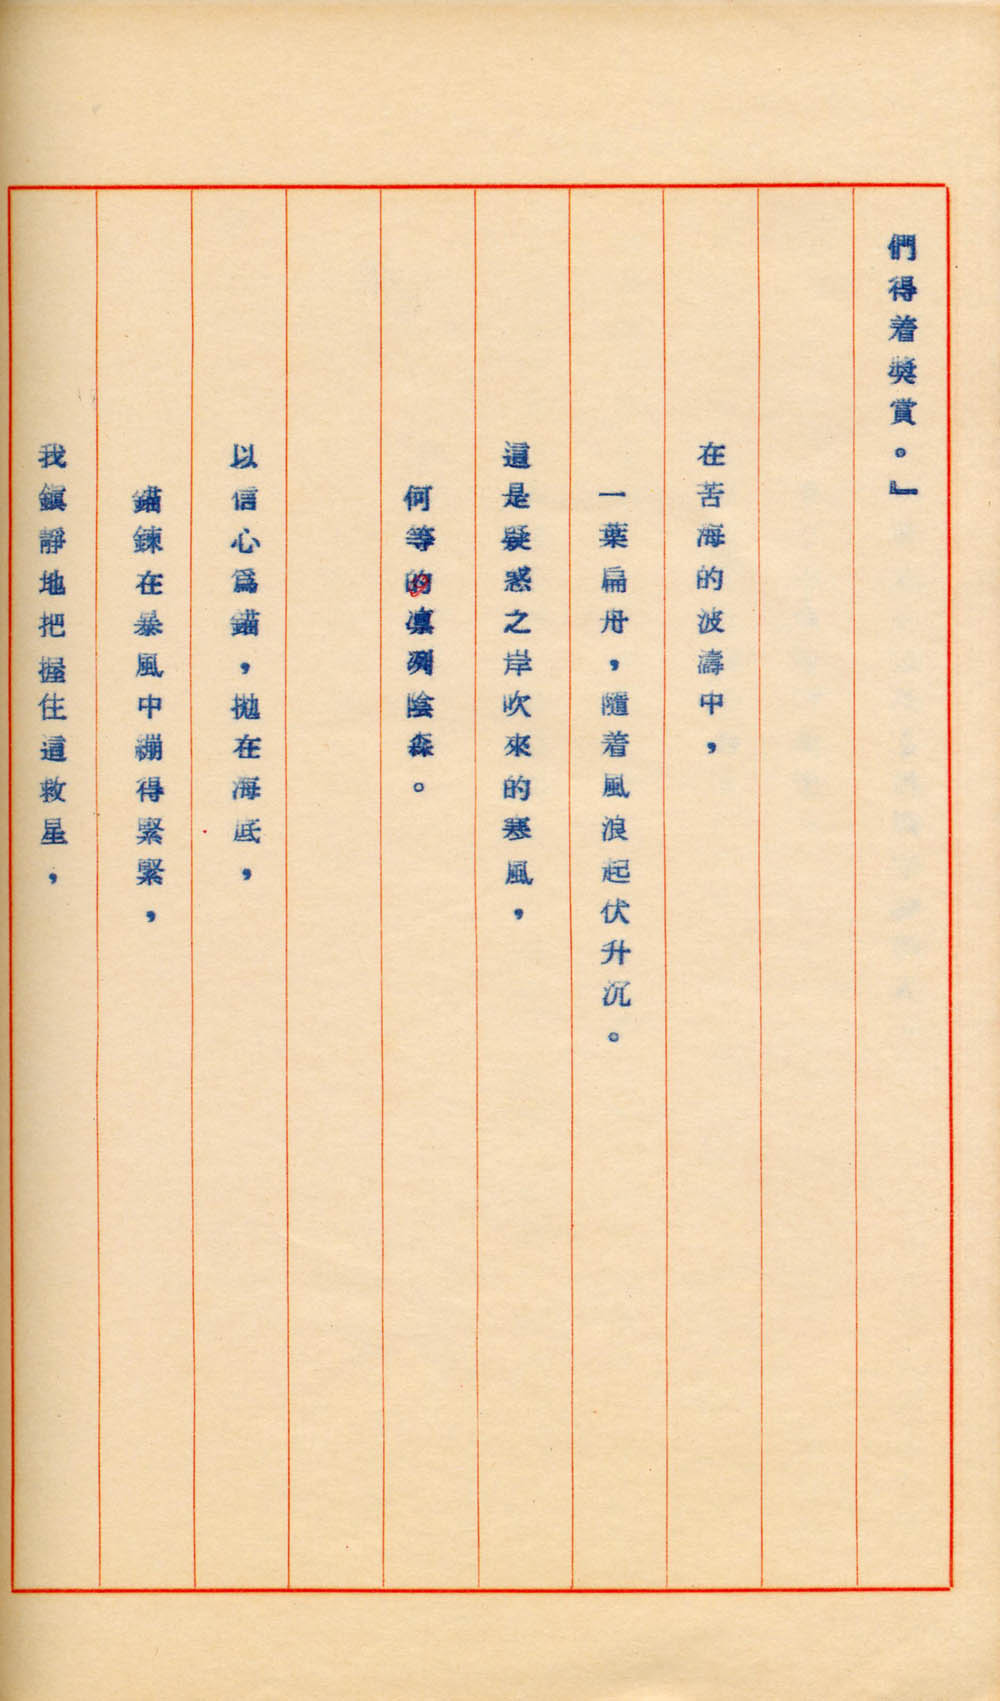 們得着獎賞。』
在苦海的波濤中，
一葉扁舟，隨着風浪起伏升沉。
這是疑惑之岸吹來的寒風，
何等的凛冽陰森。
以信心為錨，拋在海底，
錨鍊在暴風中繃得緊緊，
我鎮靜地把握住這救星，